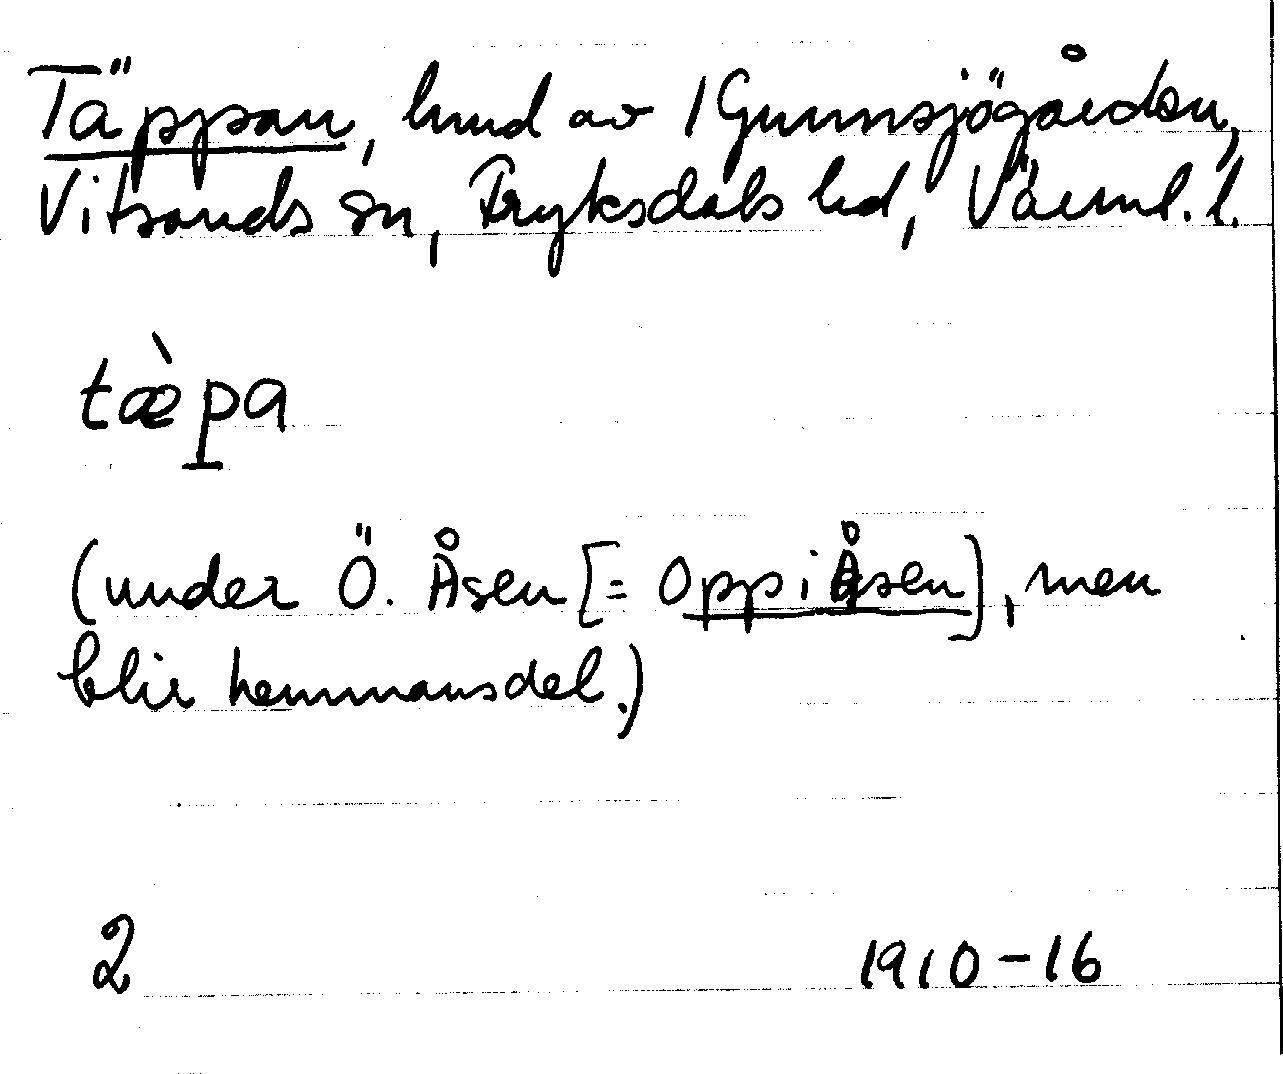 Täppan, hmd av 1 Gunnsjögården,
Vitsands sn, Fryksdals hd, Värml. l.
tæ̀pa
(under Ö. Åsen [= Oppi Åsen], men
blir hemmansdel.)
2 1910-16